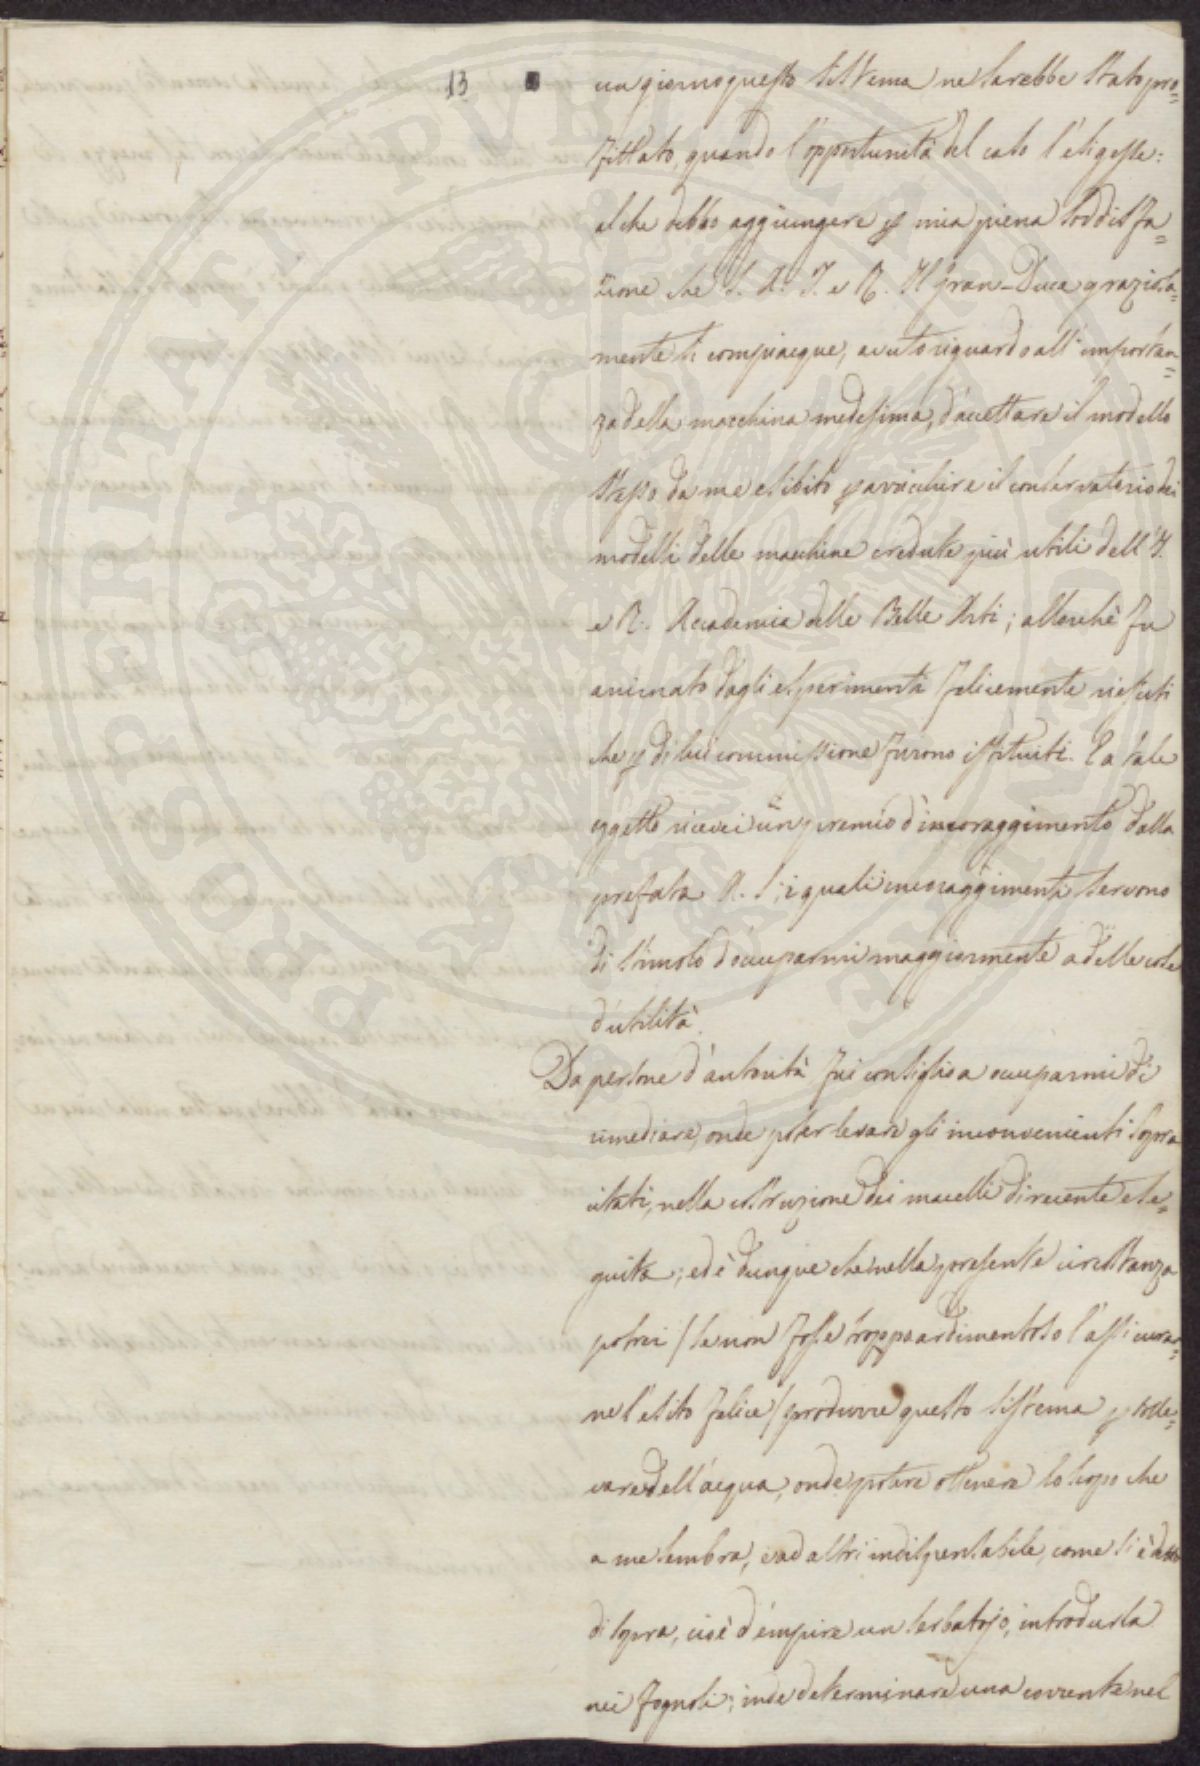 13
un giorno questo sistema ne sarebbe stato pro=
fittato, quando l'opportunità del caso l'esigesse:
al che debbo aggiungere p mia piena soddisfa=
zione che S. A. I. e R. Il Gran-Duca graziosa=
mente si compiacque, avuto riguardo all'importan=
za della macchina medesima, d'accettare il modello
stesso da me esibito p arricchire il conservatorio dei
modelli delle macchine credute più utili dell'I.
e R. Accademia delle Belle Arti; allorchè fu
animato dagli esperimenti felicemente riesciti
che p di lui commissione furono istituiti. E a tale
oggetto ricevei un premio d'incoraggimento dalla
prefata A. S; i quali incoraggimenti servono
di stimolo d'occuparmi maggiormente a delle cose
d'utilità.
Da persone d'autorità fui consiglio a occuparmi di
rimediare, onde poter levare gli inconvenienti sopra
citati, nella costruzione dei macelli di recente ese=
guita; ed è dunque che nella presente circostanza
potrei / se non fosse troppo ardimentoso l'assicurar=
ne l'esito felice / produrre questo sistema p solle=
vare dell'acqua, onde potere ottenere lo scopo che
a me sembra, e ad altri indispensabile, come si è detto
di sopra, cioè d'empire un serbatojo, introdurla
nei fognoli; indi determinare una corrente nel
PROSPERITATI PVBLICAE